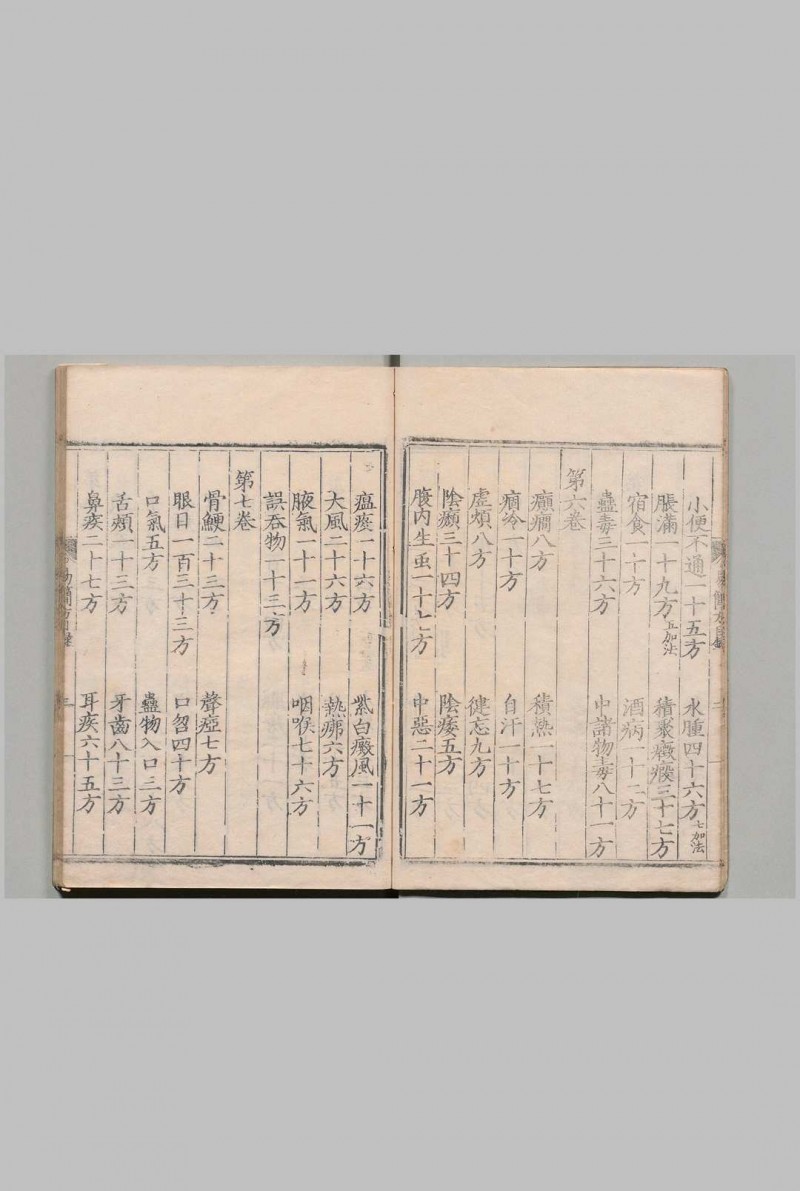 小便不通一十五方　水腫四十六方七加法
脹滿一十九方五加法　積聚癥瘕三十七方
宿食一十方　酒病一十二方
蠱毒三十六方　中諸物毒八十一方
第六卷
癲癎八方　積熱一十七方
痼冷一十方　自汗一十方
虛煩八方　健忘九方
陰㿗三十四方　陰痿五方
腹內生虫一十七方　中惡二十一方
瘟疫一十六方　紫白癜風一十一方
大風二十六方　熱痱六方
腋氣一十一方　咽喉七十六方
誤吞物一十三方
第七卷
骨鯁二十三方　聲瘂七方
眼目一百三十三方　口瘡四十方
口氣五方　蟲物入口三方
舌頰一十三方　牙齒八十三方
鼻疾二十七方　耳疾六十五方
簡方目錄　三